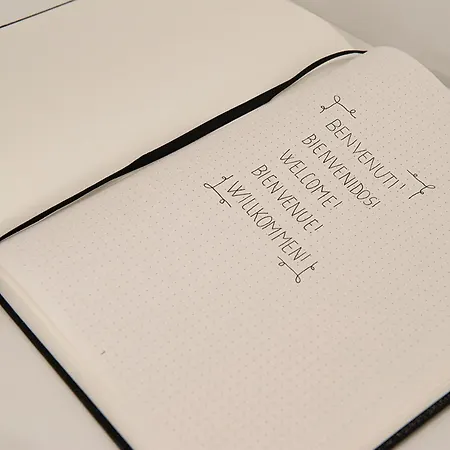 BENVENUTI!
BIENVENIDOS!
WELCOME!
BIENVENUE!
WILLKOMMEN!